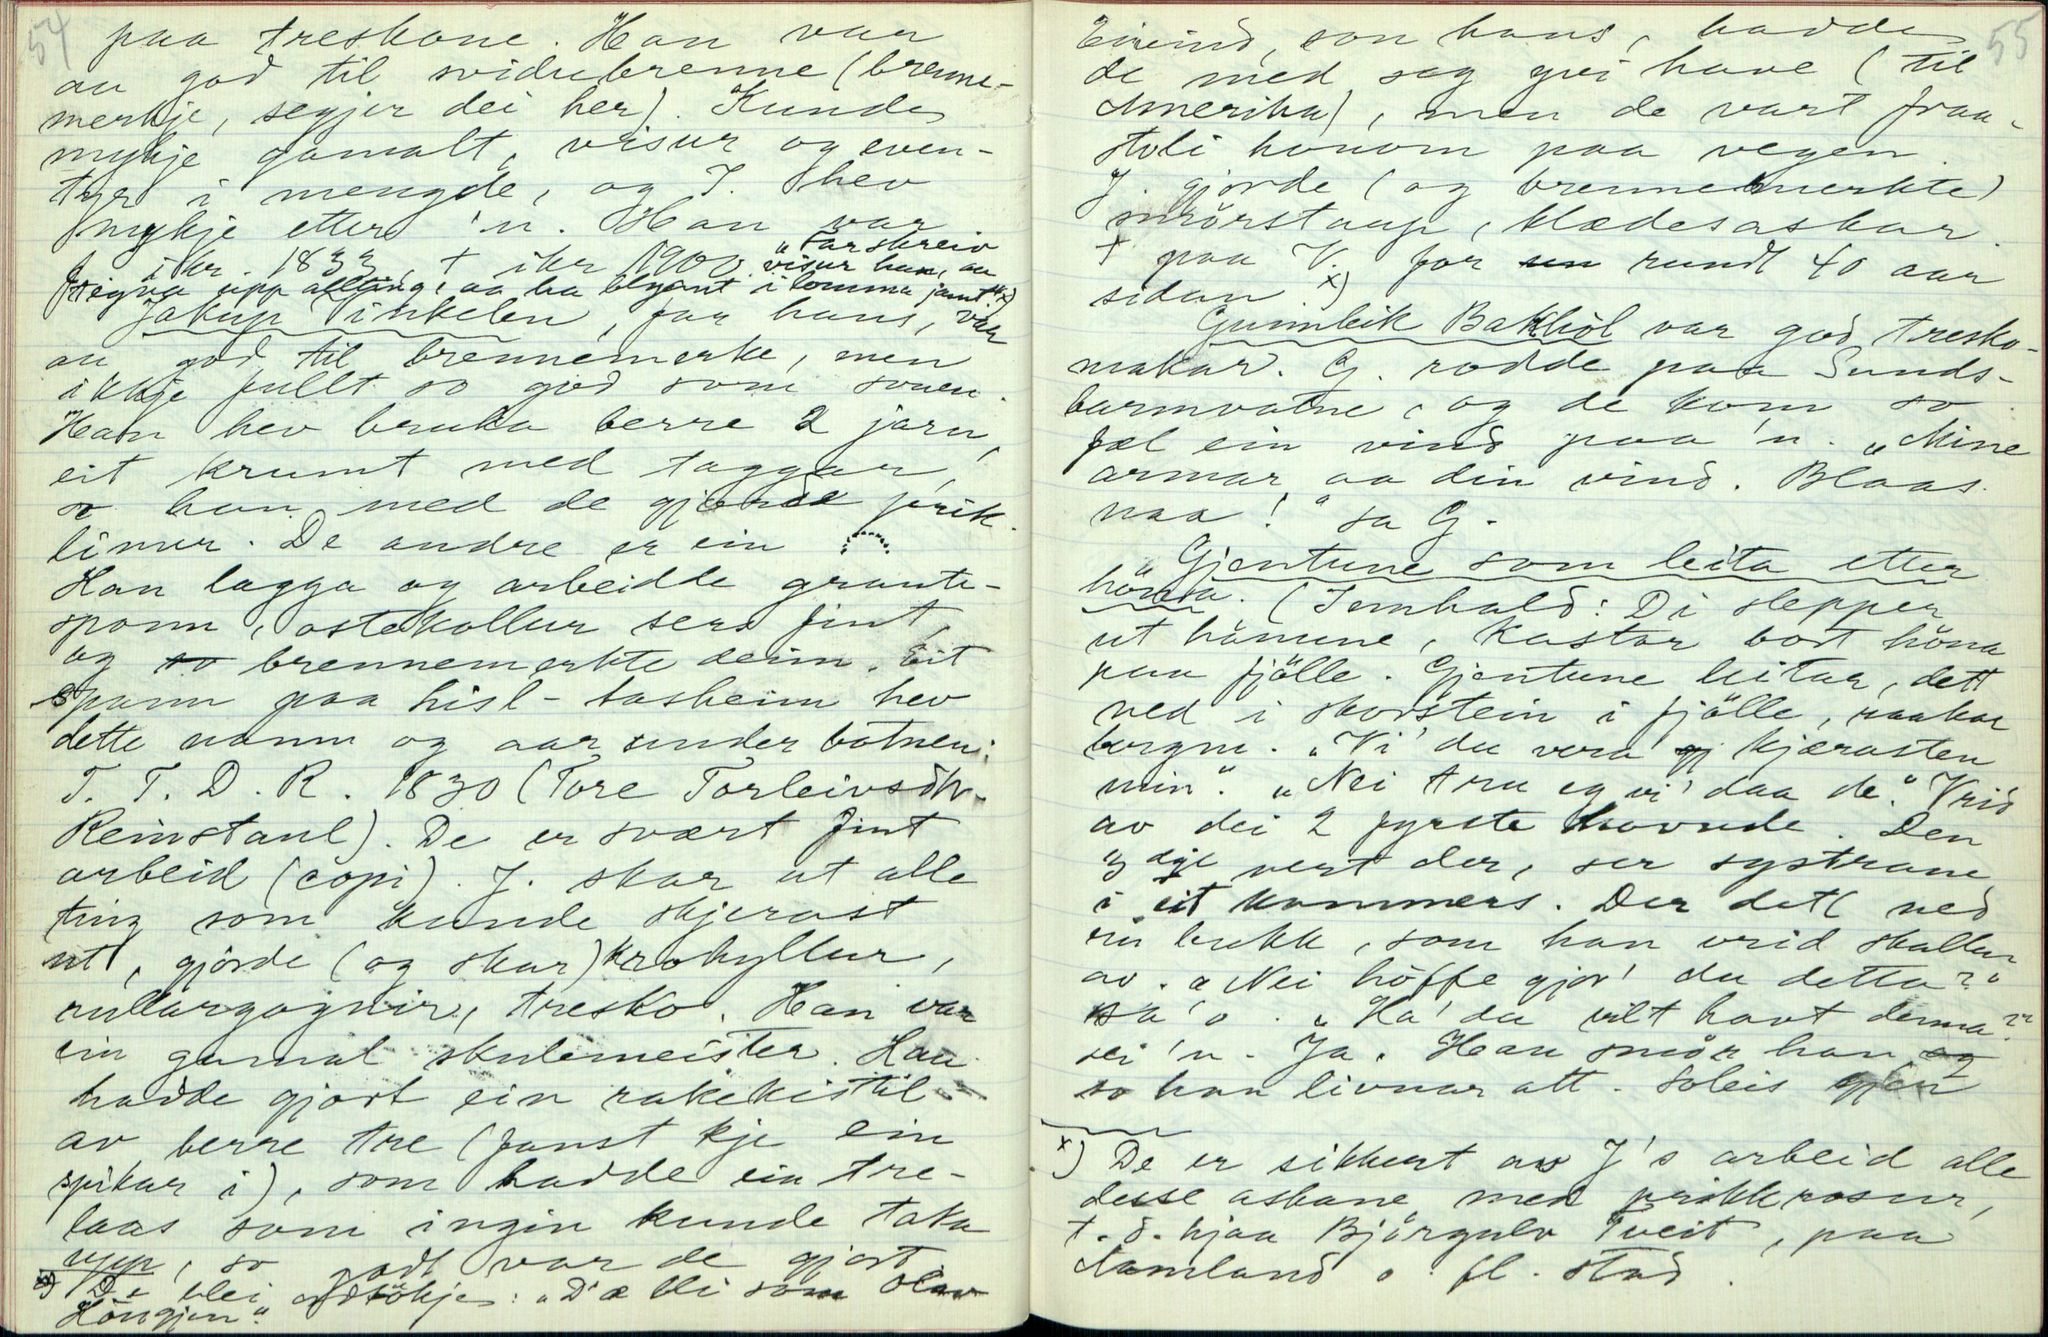 54
paa treskone. Han var
au god til svidubrenne (brenne-
merkje, segjer dei her). Kunde
mykje gamalt, visur og even-
tyr i mengde, og J. hev
mykje etter 'n. Han var
f. ikr. 1833, † ikr 1900. "Far skreiv
visur han, au
teigna upp allting, aa ha blyant i lomma jamt." x)
Jakup Vinkelen, far hans, var
au god til brennemerke, men
ikkje fullt so god som sonen.
Han hev bruka berre 2 jarn,
eit krumt med taggar,
so han med de gjorde prik-
limer. De andre er ein
Han lagga og arbeidde graute-
spann, ostekollur sers fint,
og so brennemerkte deim. Eit
spann paa Lisl-Aasheim hev
dette namn og aar under botnen:
T. T. D. R. 1830 (Tore Torleivsdtr.
Reinstaul). De er svært fint
arbeid (copi). J. skar ut alle
ting som kunde skjerast
ut, gjorde (og skar) krohyllur,
rullargogner, tresko. Han var
ein gamal skulemeister. Han
hadde gjort ein rakekistil
av berre tre (fanst kje ein
spikar i), som hadde ein tre-
laas som ingin kunde taka
upp, so godt var de gjort.
x) De blei ordtökje: "D'æ bli som Olav
Höngjen."
55
Eivind, son hans, hadde
de med seg yvi have (til
Amerika), men de vart fraa-
stoli honom paa vegen.
J. gjorde (og brennemerkte)
smörstaup, klædesaskar.
† paa V. for rundt 40 aar
sidan. x)
Gunnleik Bakhòl var god tresko-
makar. G. rodde paa Sunds-
barmvatne, og de kom so
fæl ein vind paa 'n. "Mine
armar aa din vind. Blaas
naa!" sa G.
"Gjentune som leita etter
höna. (Innhald: Di slepper
ut hönune, kastar bort höna
paa fjölle. Gjentune leitar, dett
ned i skorstein i fjölle, raakar
bergm. "Vi' du vera kjærasten
min". "Nei tru eg vi' daa de." Vrid
av dei 2 fyrste hovude. Den
3 dje vert der, ser systrane
i eit kammers. Der dett ned
ein bukk, som han vrid skallen
av. "Nei höffe gjor' du detta?"
sa 'o. "Ha' du vilt havt denna?"
sei 'n. Ja. Han smör han og
so han livnar att. Soleis gjer
x) De er sikkert av J's arbeid alle
desse askane med prikkrosur,
t. d. hjaa Björgulv Tveit, paa
Aamland o. fl. stad.